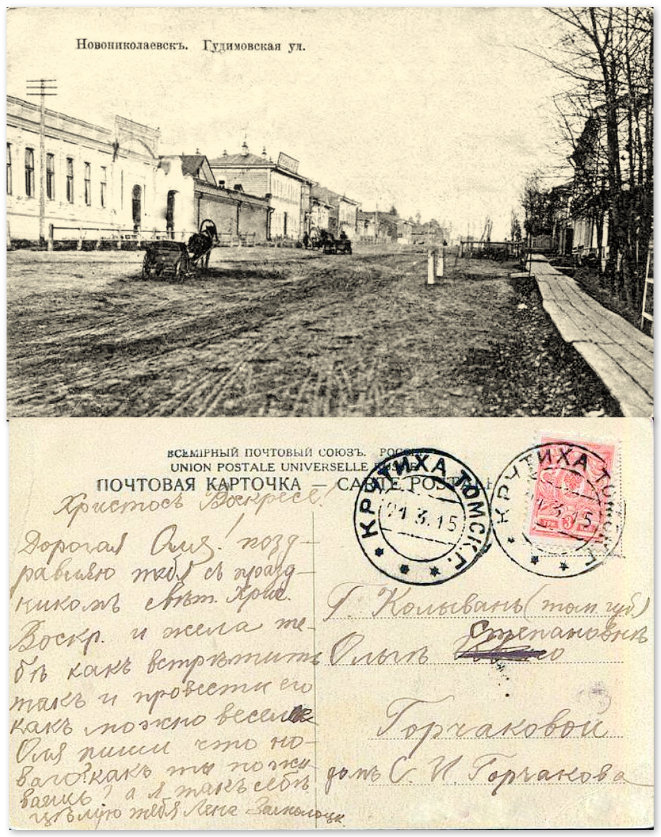 Новониколаевскъ. Гудимовская ул.
ВСЕМІРНЫЙ ПОЧТОВЫЙ СОЮЗЪ. РОССІЯ
UNION POSTALE UNIVERSELLE RUSSIE
ПОЧТОВАЯ КАРТОЧКА — CARTE POSTALE
КРУТИХА ТОМСК.Г.
21 3.15
КРУТИХА ТОМСК.Г.
3.15
Христосъ Воскресе!
Дорогая Оля! позд-
равляю тебя съ празд-
никомъ свѣт. Хрис.
Воскр. и жела те-
бѣ какъ встрѣтить
такъ и провести его
какъ можно веселѣе
Оля пиши что но-
ваго? какъ ты пожи-
ваешь? а я такъ себѣ
цѣлую тебя Лена
Г. Колывань (том. губ)
Степановнѣ
Ольгѣ
Горчаковой
домъ С. И. Горчакова